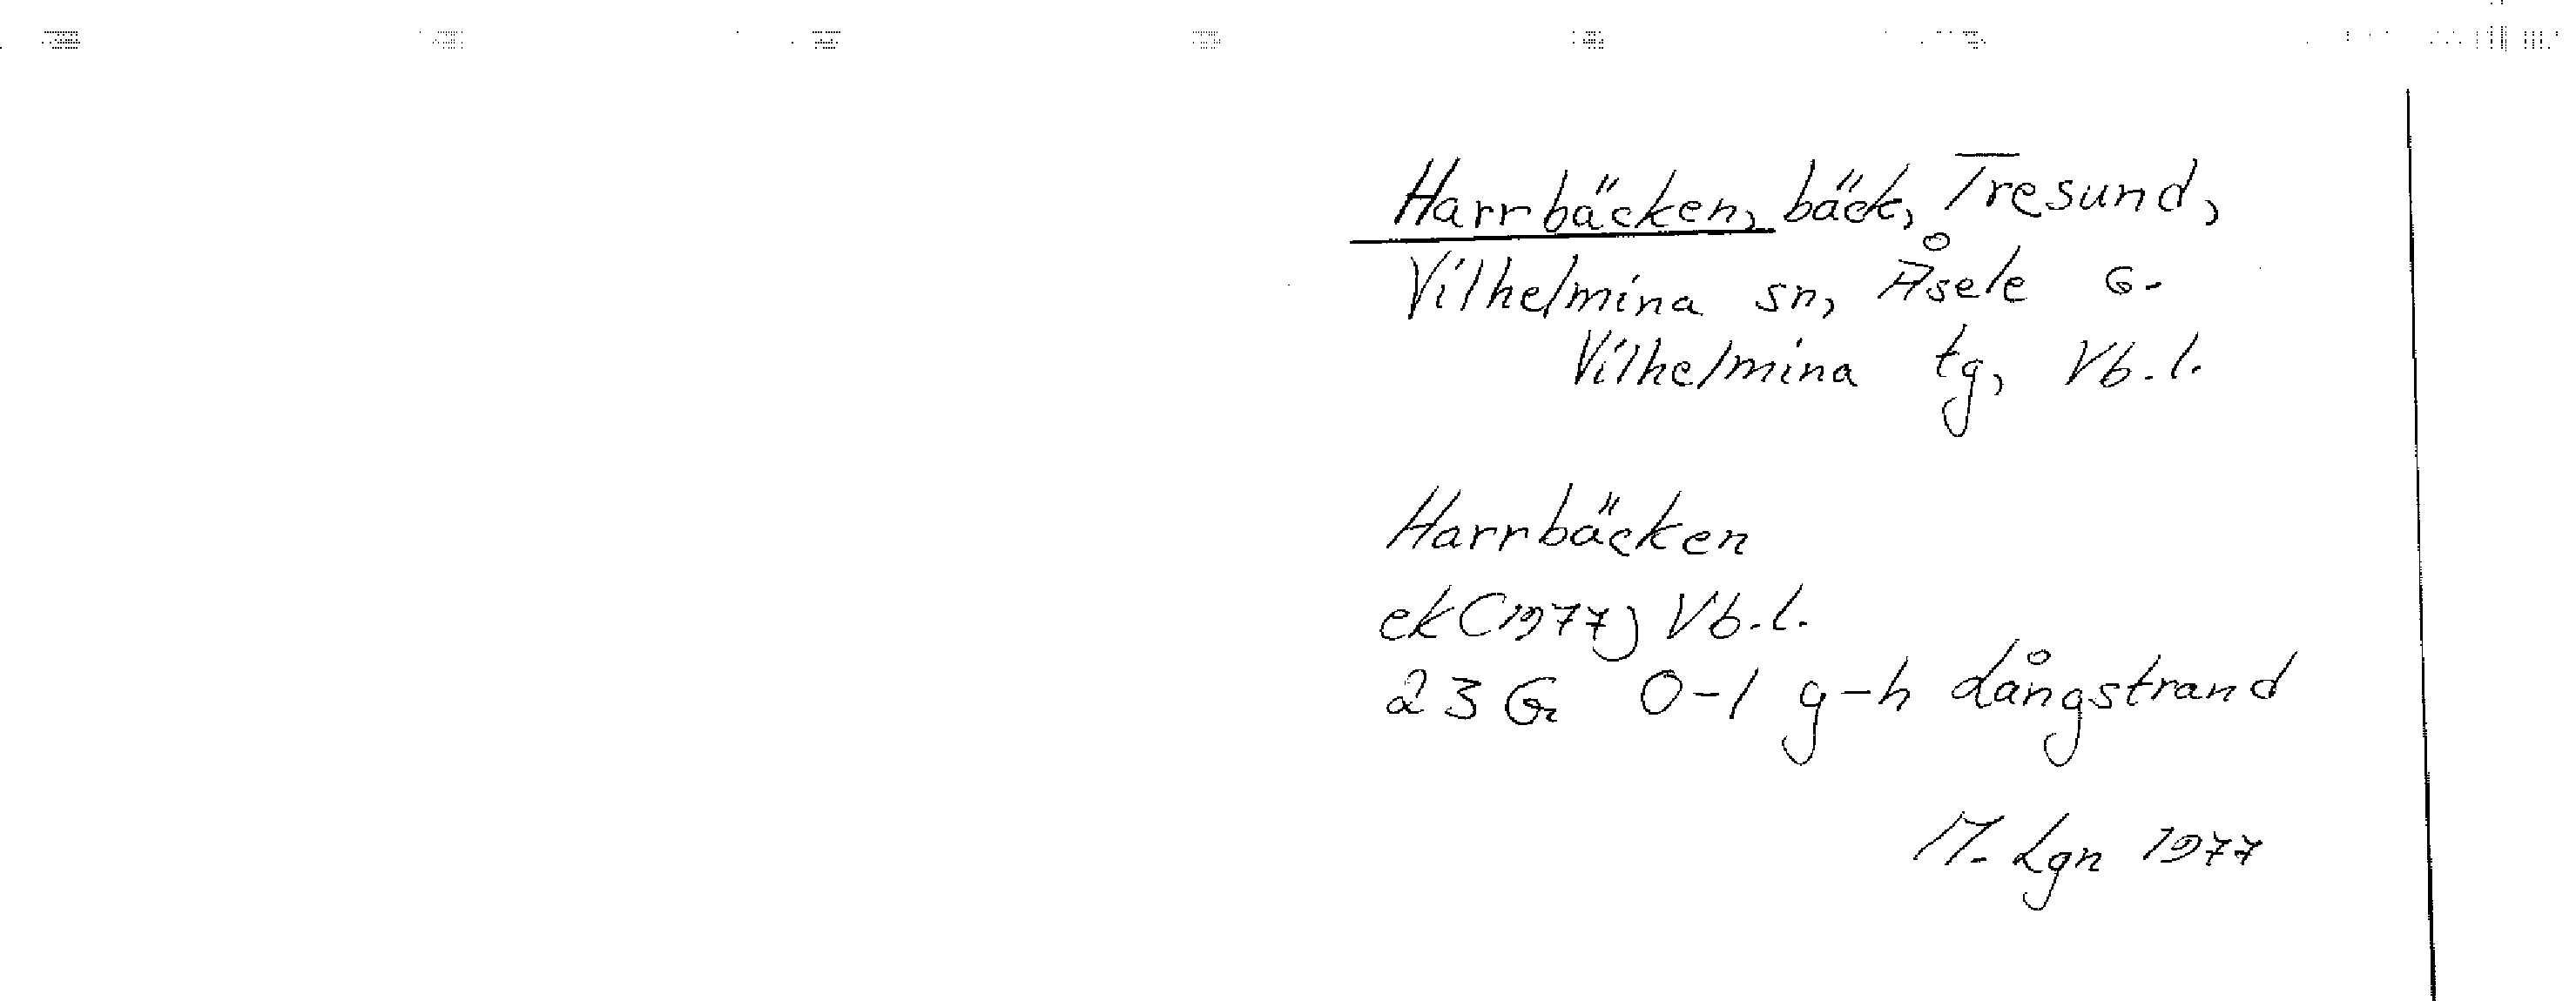 Harrbäcken, bäck, Tresund,
Vilhelmina sn, Åsele o.
Vilhelmina tg, Vb.l.
Harrbäcken
ek (1977) Vb.l.
23 G 0-1 g-h Långstrand
M. Lgn 1977